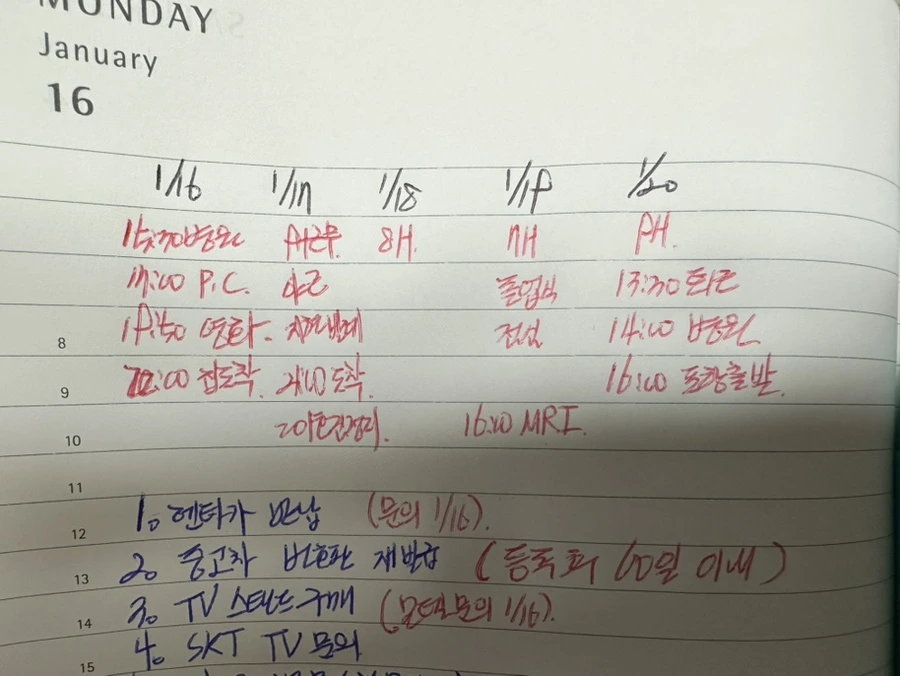 MONDAY
January
16
1/16 1/17 1/18 1/19 1/20
15:30 병원 8H. 7H PH.
17:00 P.C. 야근 졸업식 13:30 퇴근
8 19:50 영화. 점심 14:00 병원
9 22:00 집도착. 21:00 도착. 16:00 포항출발.
10 16:00 MRI.
11
12 1. 렌타카 반납 (문의 1/16).
13 2. 중고차 번호판 재발급 (등록 후 60일 이내)
14 3. TV 스탠드 구매 (문의 1/16).
15 4. SKT TV 문의